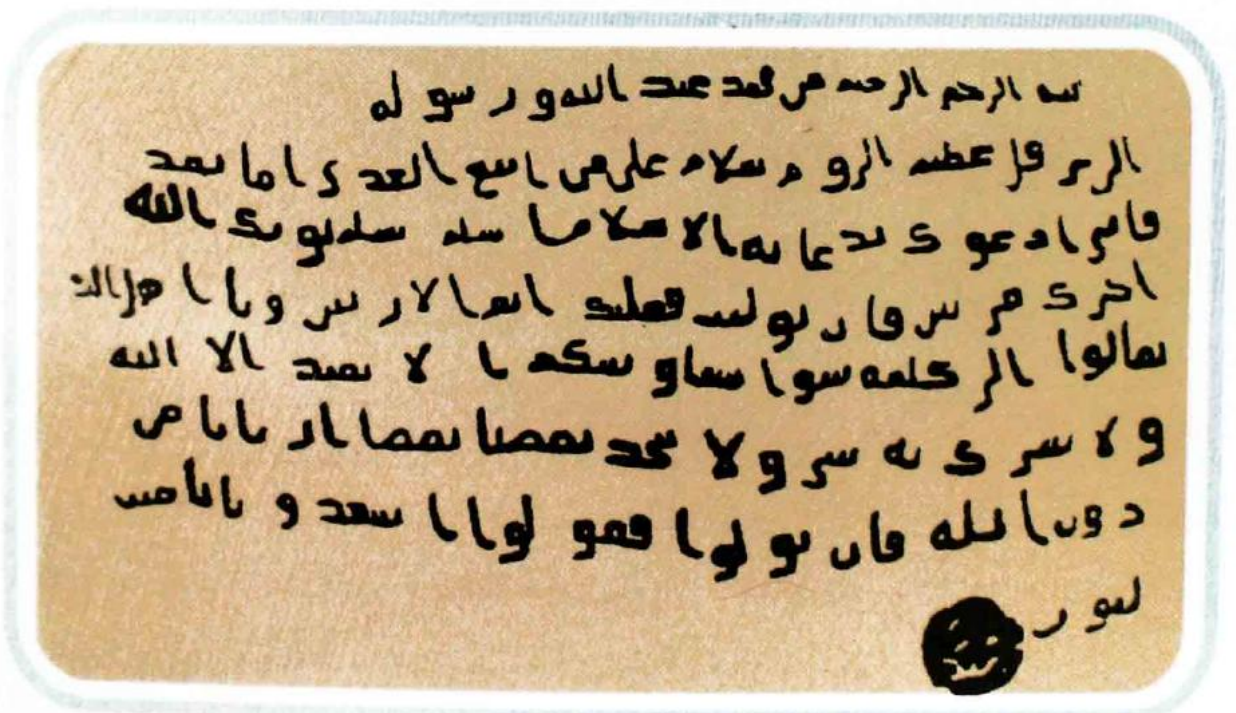 بسم الرحمن الرحيم من محمد عبد الله و رسوله
الى هرقل عظيم الروم سلام على من اتبع الهدى اما بعد
فانى ادعوك بدعاية الاسلام اسلم تسلم يوتك الله
اجرك مرتين فان توليت فعليك اثم الاريسين ويا اهل الكتاب
تعالوا الى كلمة سوا بيننا وبينكم ا لا نعبد الا الله
ولا نشرك به شى ولا يتخذ بعضنا بعضا اربابا من
دون الله فان تولوا فقولوا اشهدو بانا مسلمون